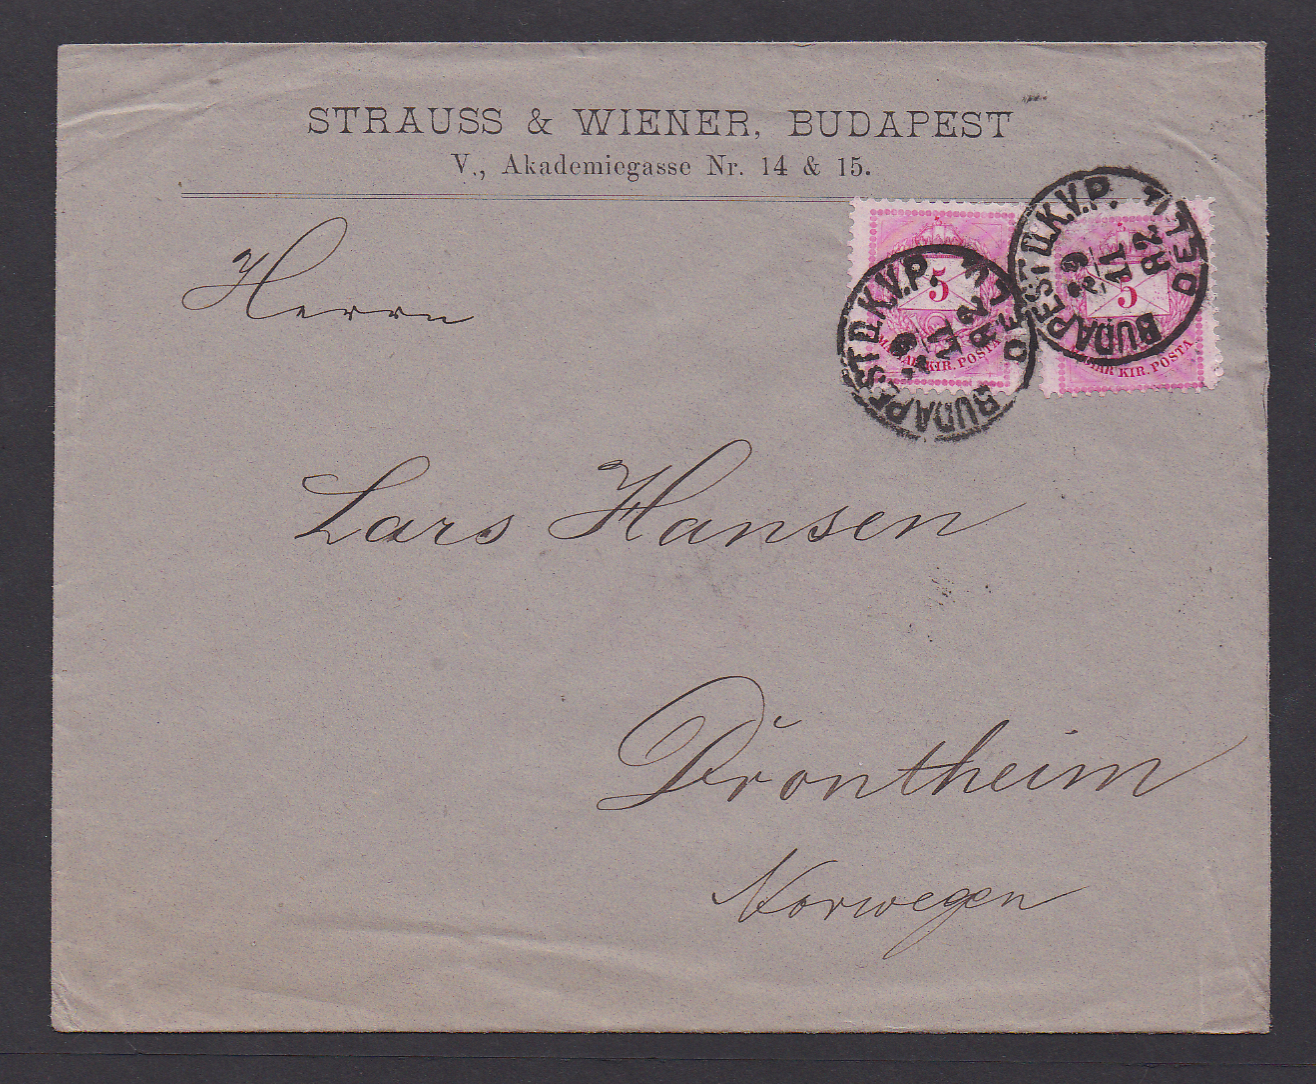 STRAUSS & WIENER, BUDAPEST
V., Akademiegasse Nr. 14 & 15.
Herrn
5
MAGYAR KIR. POSTA
BUDAPEST D.K.V.P.
82
11
5
MAGYAR KIR. POSTA
BUDAPEST D.K.V.P.
82
11
Lars Hansen
Drontheim
Norwegen